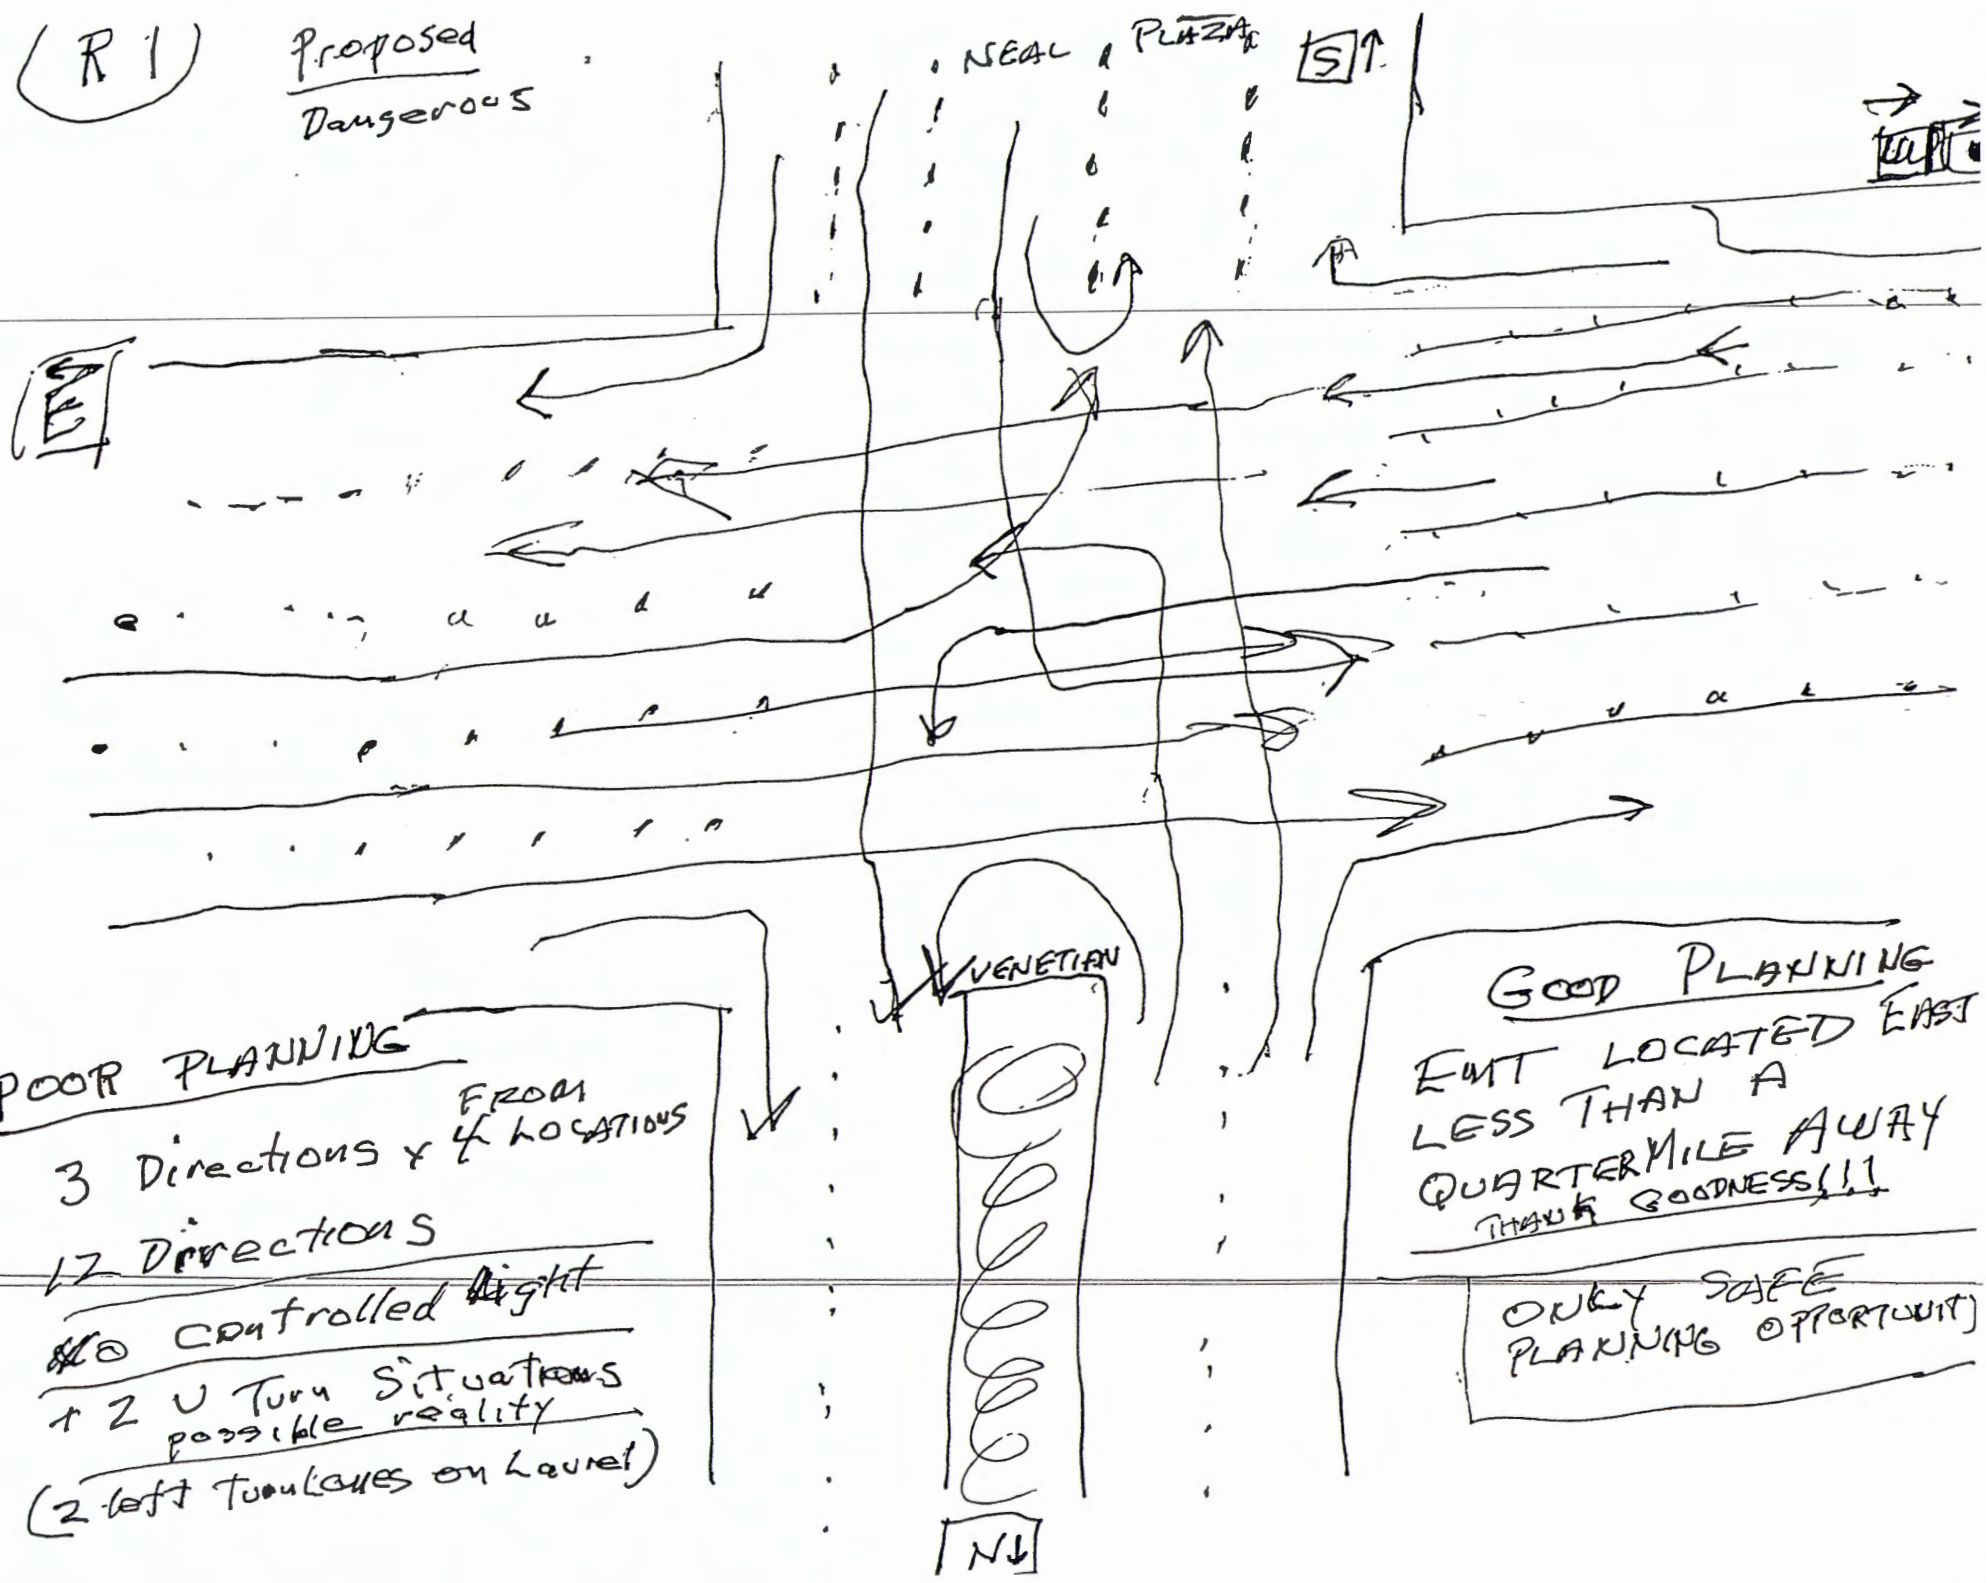 R1
Proposed
Dangerous
NEAL PLAZA
S↑
E
VENETIAN
POOR PLANNING
3 Directions x 4 LOCATIONS
FROM
12 Directions
NO controlled light
+ 2 U Turn Situations
possible reality
(2 left Turn Lanes on Laurel)
N↓
GOOD PLANNING
EMT LOCATED EAST
LESS THAN A
QUARTER MILE AWAY
THANK GOODNESS!!!
ONLY SAFE
PLANNING OPPORTUNITY